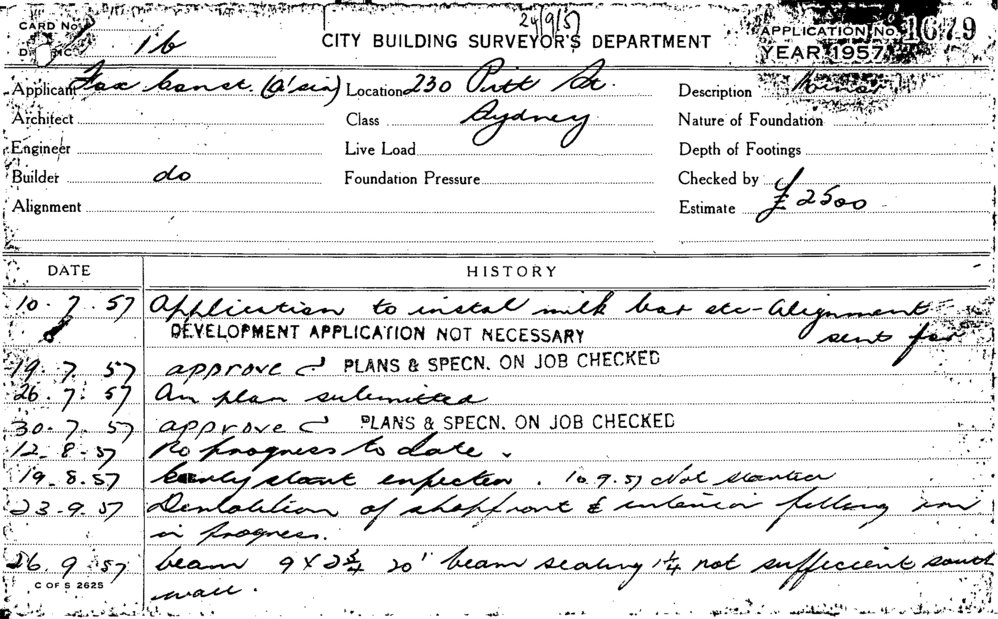 24/9/57
CARD No.
16
CITY BUILDING SURVEYOR'S DEPARTMENT
APPLICATION No. 1679
YEAR 1957
Applicant Fox Const. (A'sia) Location 230 Pitt St. Description Minor
Architect Class Sydney Nature of Foundation
Engineer Live Load Depth of Footings
Builder do Foundation Pressure Checked by
Alignment Estimate £2500
DATE HISTORY
10.7.57 Application to instal milk bar etc - Alignment
DEVELOPMENT APPLICATION NOT NECESSARY sent for
19.7.57 approve PLANS & SPECN. ON JOB CHECKED
26.7.57 An plan submitted
30.7.57 approve PLANS & SPECN. ON JOB CHECKED
12.8.57 No progress to date.
19.8.57 Early start expected. 10.9.57 Not started
23.9.57 Demolition of shopfront & interior fitting
in progress.
26.9.57 beam 9 x 2 3/4 20' beam seating 1 1/4 not sufficient south
C OF S 2625
wall.